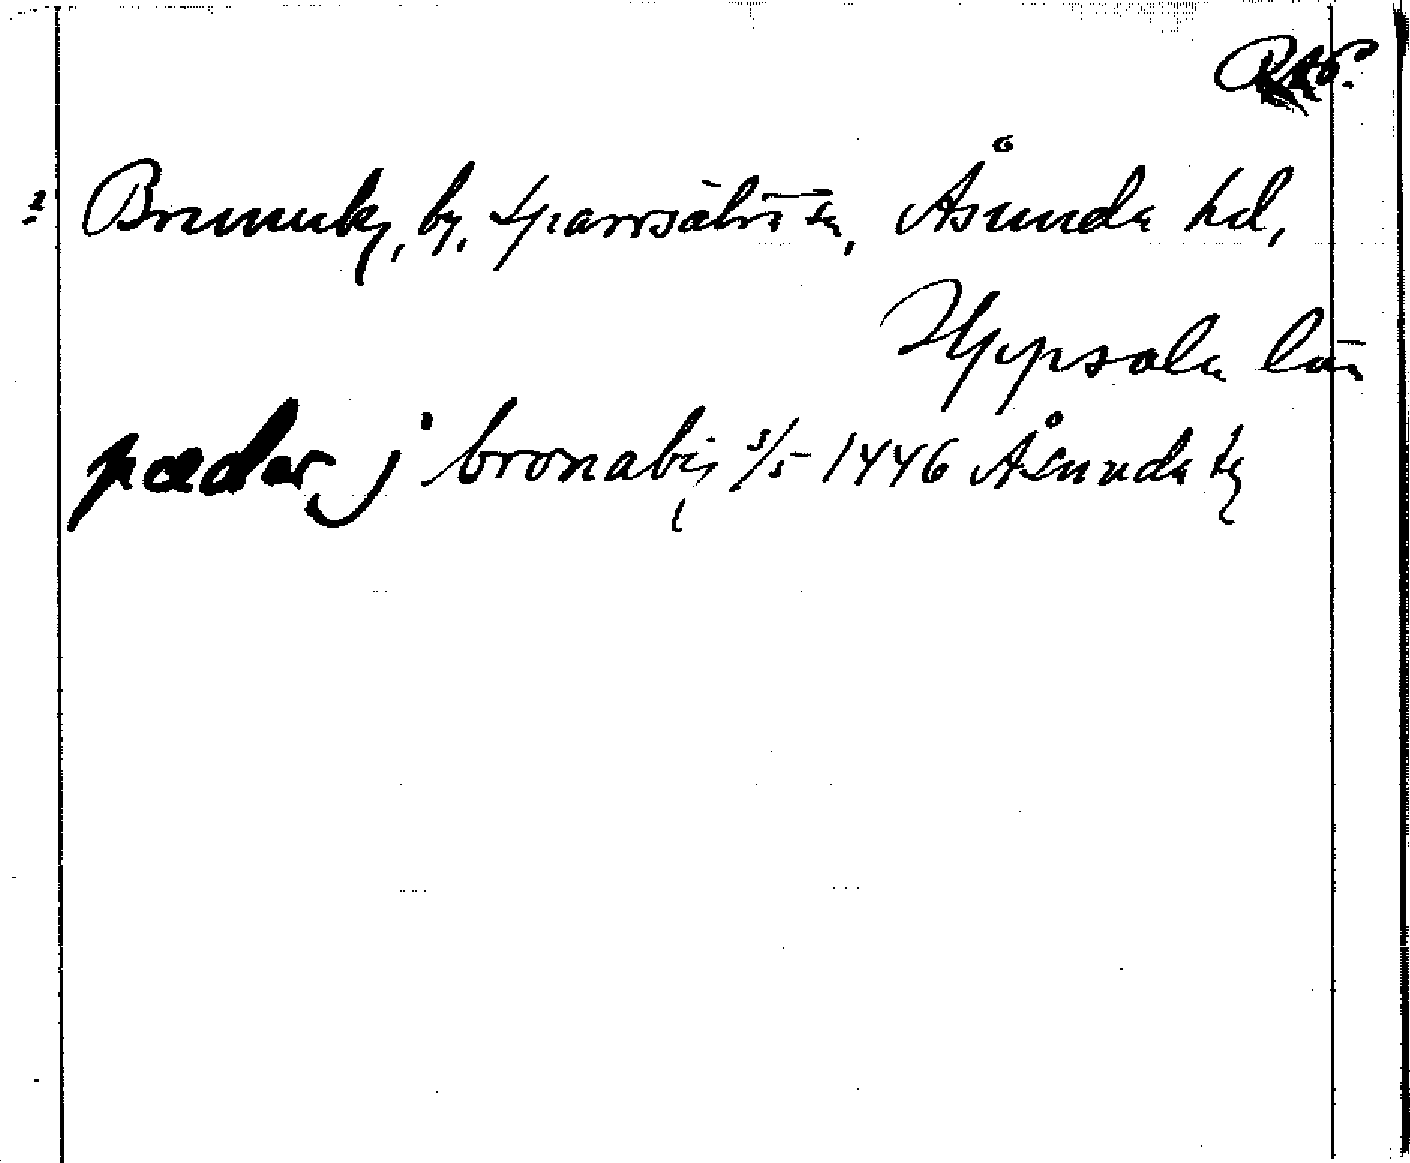 RAP.
Brunnby, by, Sparrsätra sn, Åsunda hd,
Uppsala län
pædar j bronabij 3/5 1446 Åsunda hd